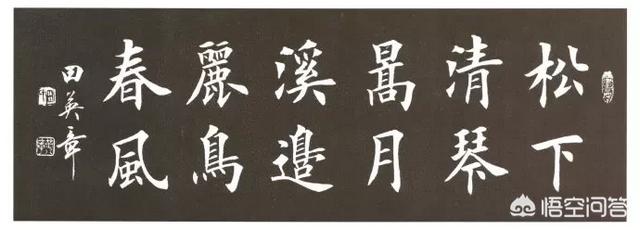 松下
清琴
暠月
溪邊
麗鳥
春風
田英章
悟空问答